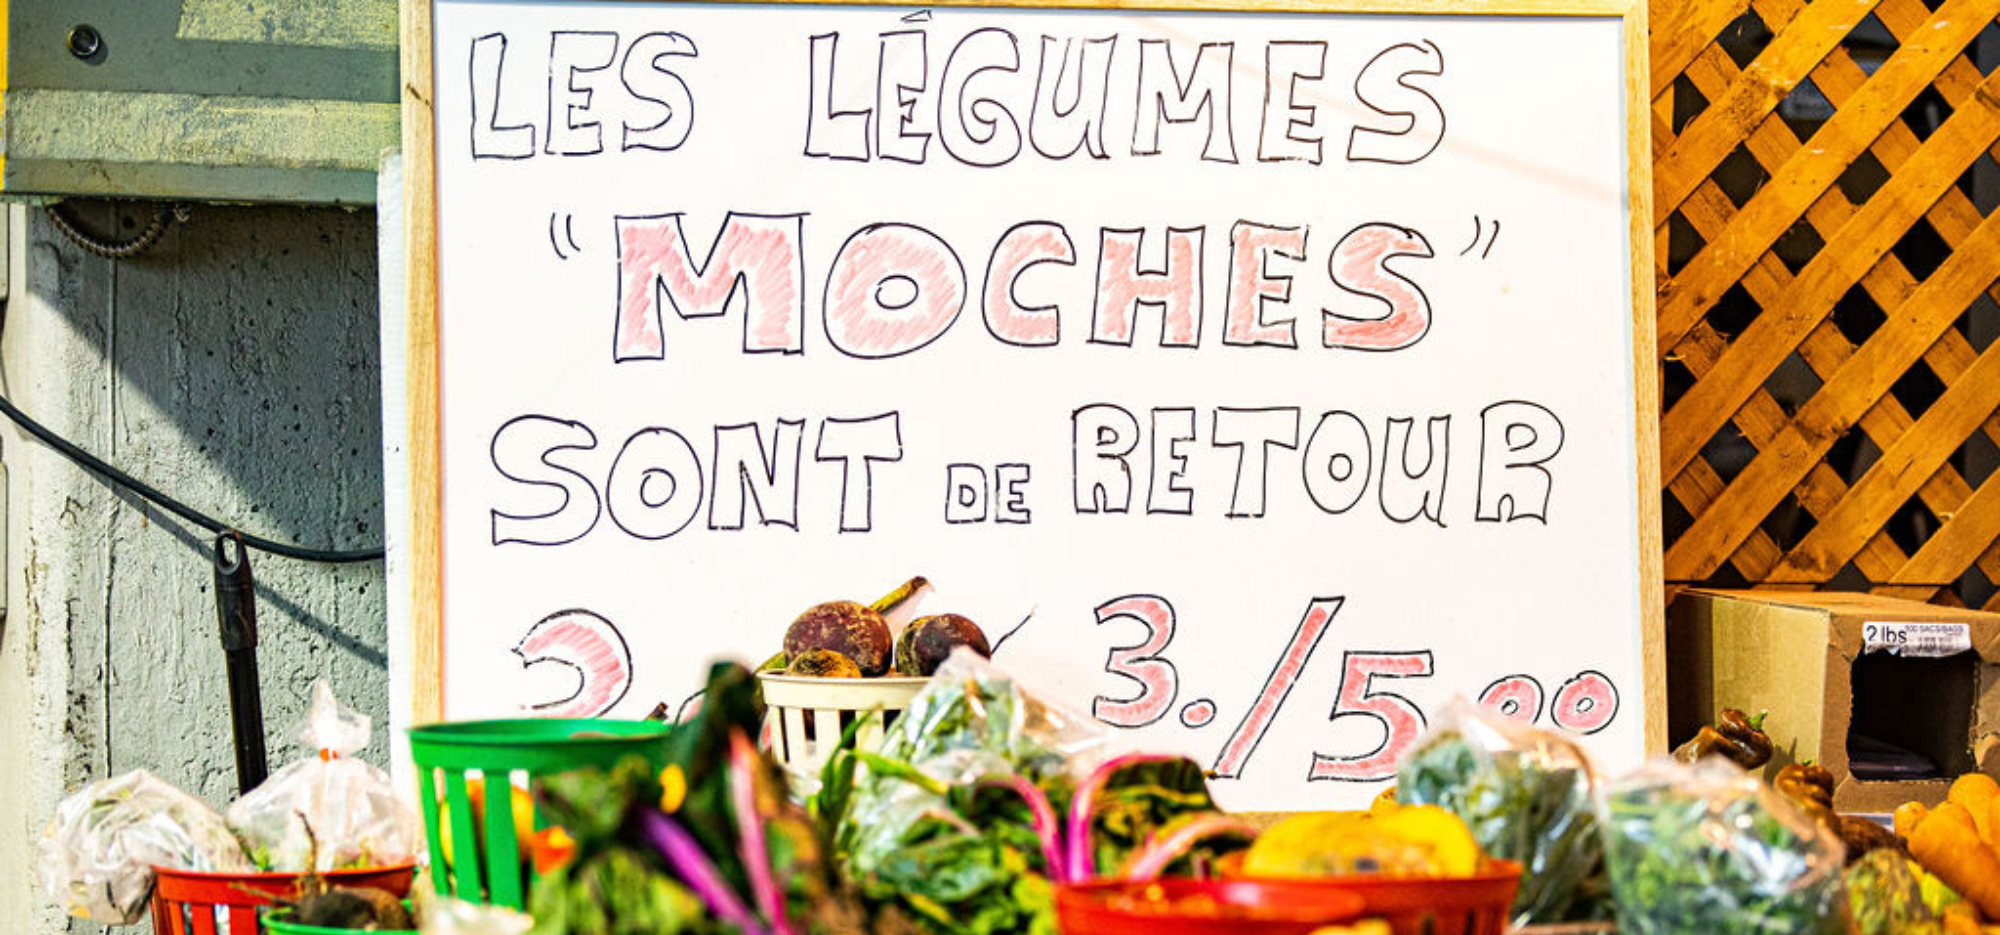 LES LÉGUMES
“MOCHES”
SONT DE RETOUR
3./5.00
2 lbs 500 SACS/BAGS